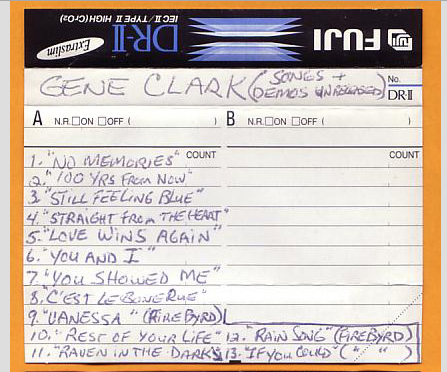 FUJI
DR-II
IEC II / TYPE II HIGH (CrO2)
Extraslim
GENE CLARK (SONGS + DEMOS UNRELEASED)
No.
DR-II
A N.R. □ON □OFF ( )
B N.R. □ON □OFF ( )
COUNT
COUNT
1. "NO MEMORIES"
2. "100 YRS FROM NOW"
3. "STILL FEELING BLUE"
4. "STRAIGHT FROM THE HEART"
5. "LOVE WINS AGAIN"
6. "YOU AND I"
7. "YOU SHOWED ME"
8. "C'EST LE BONE RUE"
9. "VANESSA" (FIREBYRD)
10. "REST OF YOUR LIFE" 12. "RAIN SONG" (FIREBYRD)
11. "RAVEN IN THE DARK" 13. "IF YOU COULD" (" ")